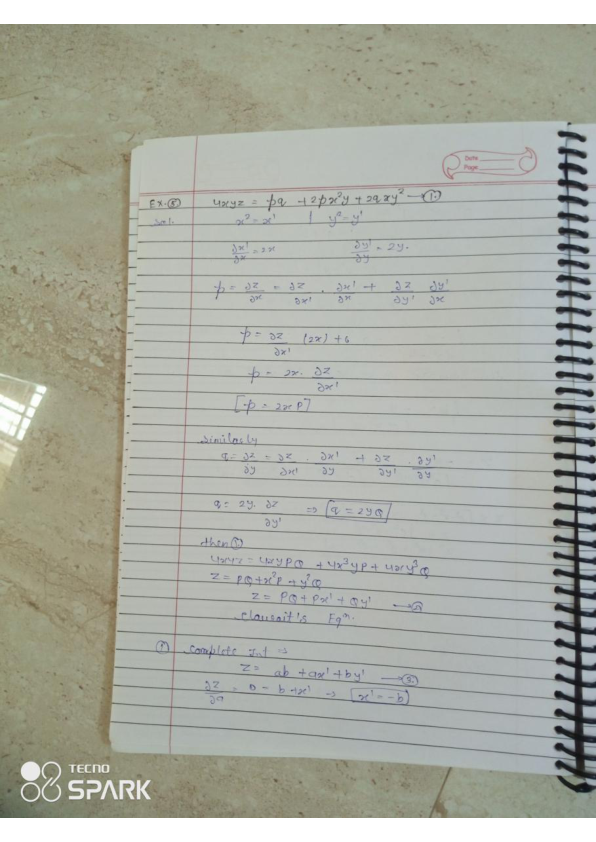 Date
Page
Ex.⑧ 4xyz = pq + 2px²y + 2qxy² —①
Sol. x² = x' | y² = y'
∂x'/∂x = 2x ∂y'/∂y = 2y.
p = ∂z/∂x = ∂z/∂x' · ∂x'/∂x + ∂z/∂y' ∂y'/∂x
p = ∂z/∂x' (2x) + 0
p = 2x · ∂z/∂x'
[p = 2xP]
Similarly
q = ∂z/∂y = ∂z/∂x' · ∂x'/∂y + ∂z/∂y' · ∂y'/∂y
q = 2y · ∂z/∂y' ⇒ [q = 2yQ]
then ①
4xyz = 4xyPQ + 4x³yP + 4xy³Q
z = PQ + x²P + y²Q
z = PQ + Px' + Qy' —②
Eqⁿ.
① Complete Int ⇒
z = ab + ax' + by' —③
∂z/∂a = 0 = b + x' ⇒ [x' = -b]
TECNO
SPARK